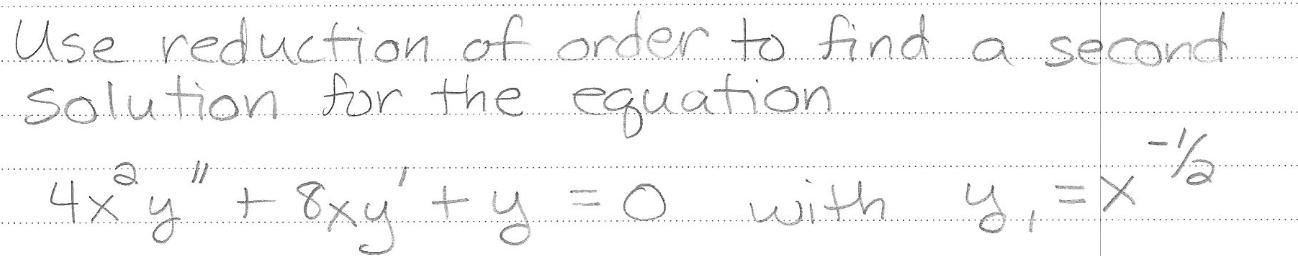 Use reduction of order to find a second
solution for the equation
4x²y'' + 8xy' + y = 0 with y₁ = x^{-1/2}